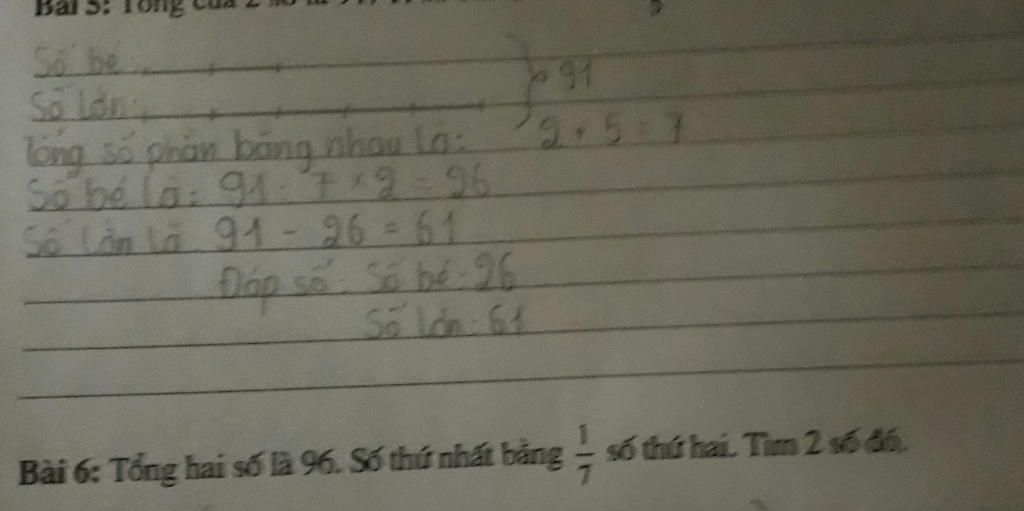 Bài 5: Tổng của 2 số là 91,
Số bé:
91
Số lớn:
Tổng số phần bằng nhau là: 2 + 5 = 7
Số bé là: 91 : 7 × 2 = 26
Số lớn là 91 - 26 = 61
Đáp số: Số bé: 26
Số lớn: 61
Bài 6: Tổng hai số là 96. Số thứ nhất bằng 1/7 số thứ hai. Tìm 2 số đó.